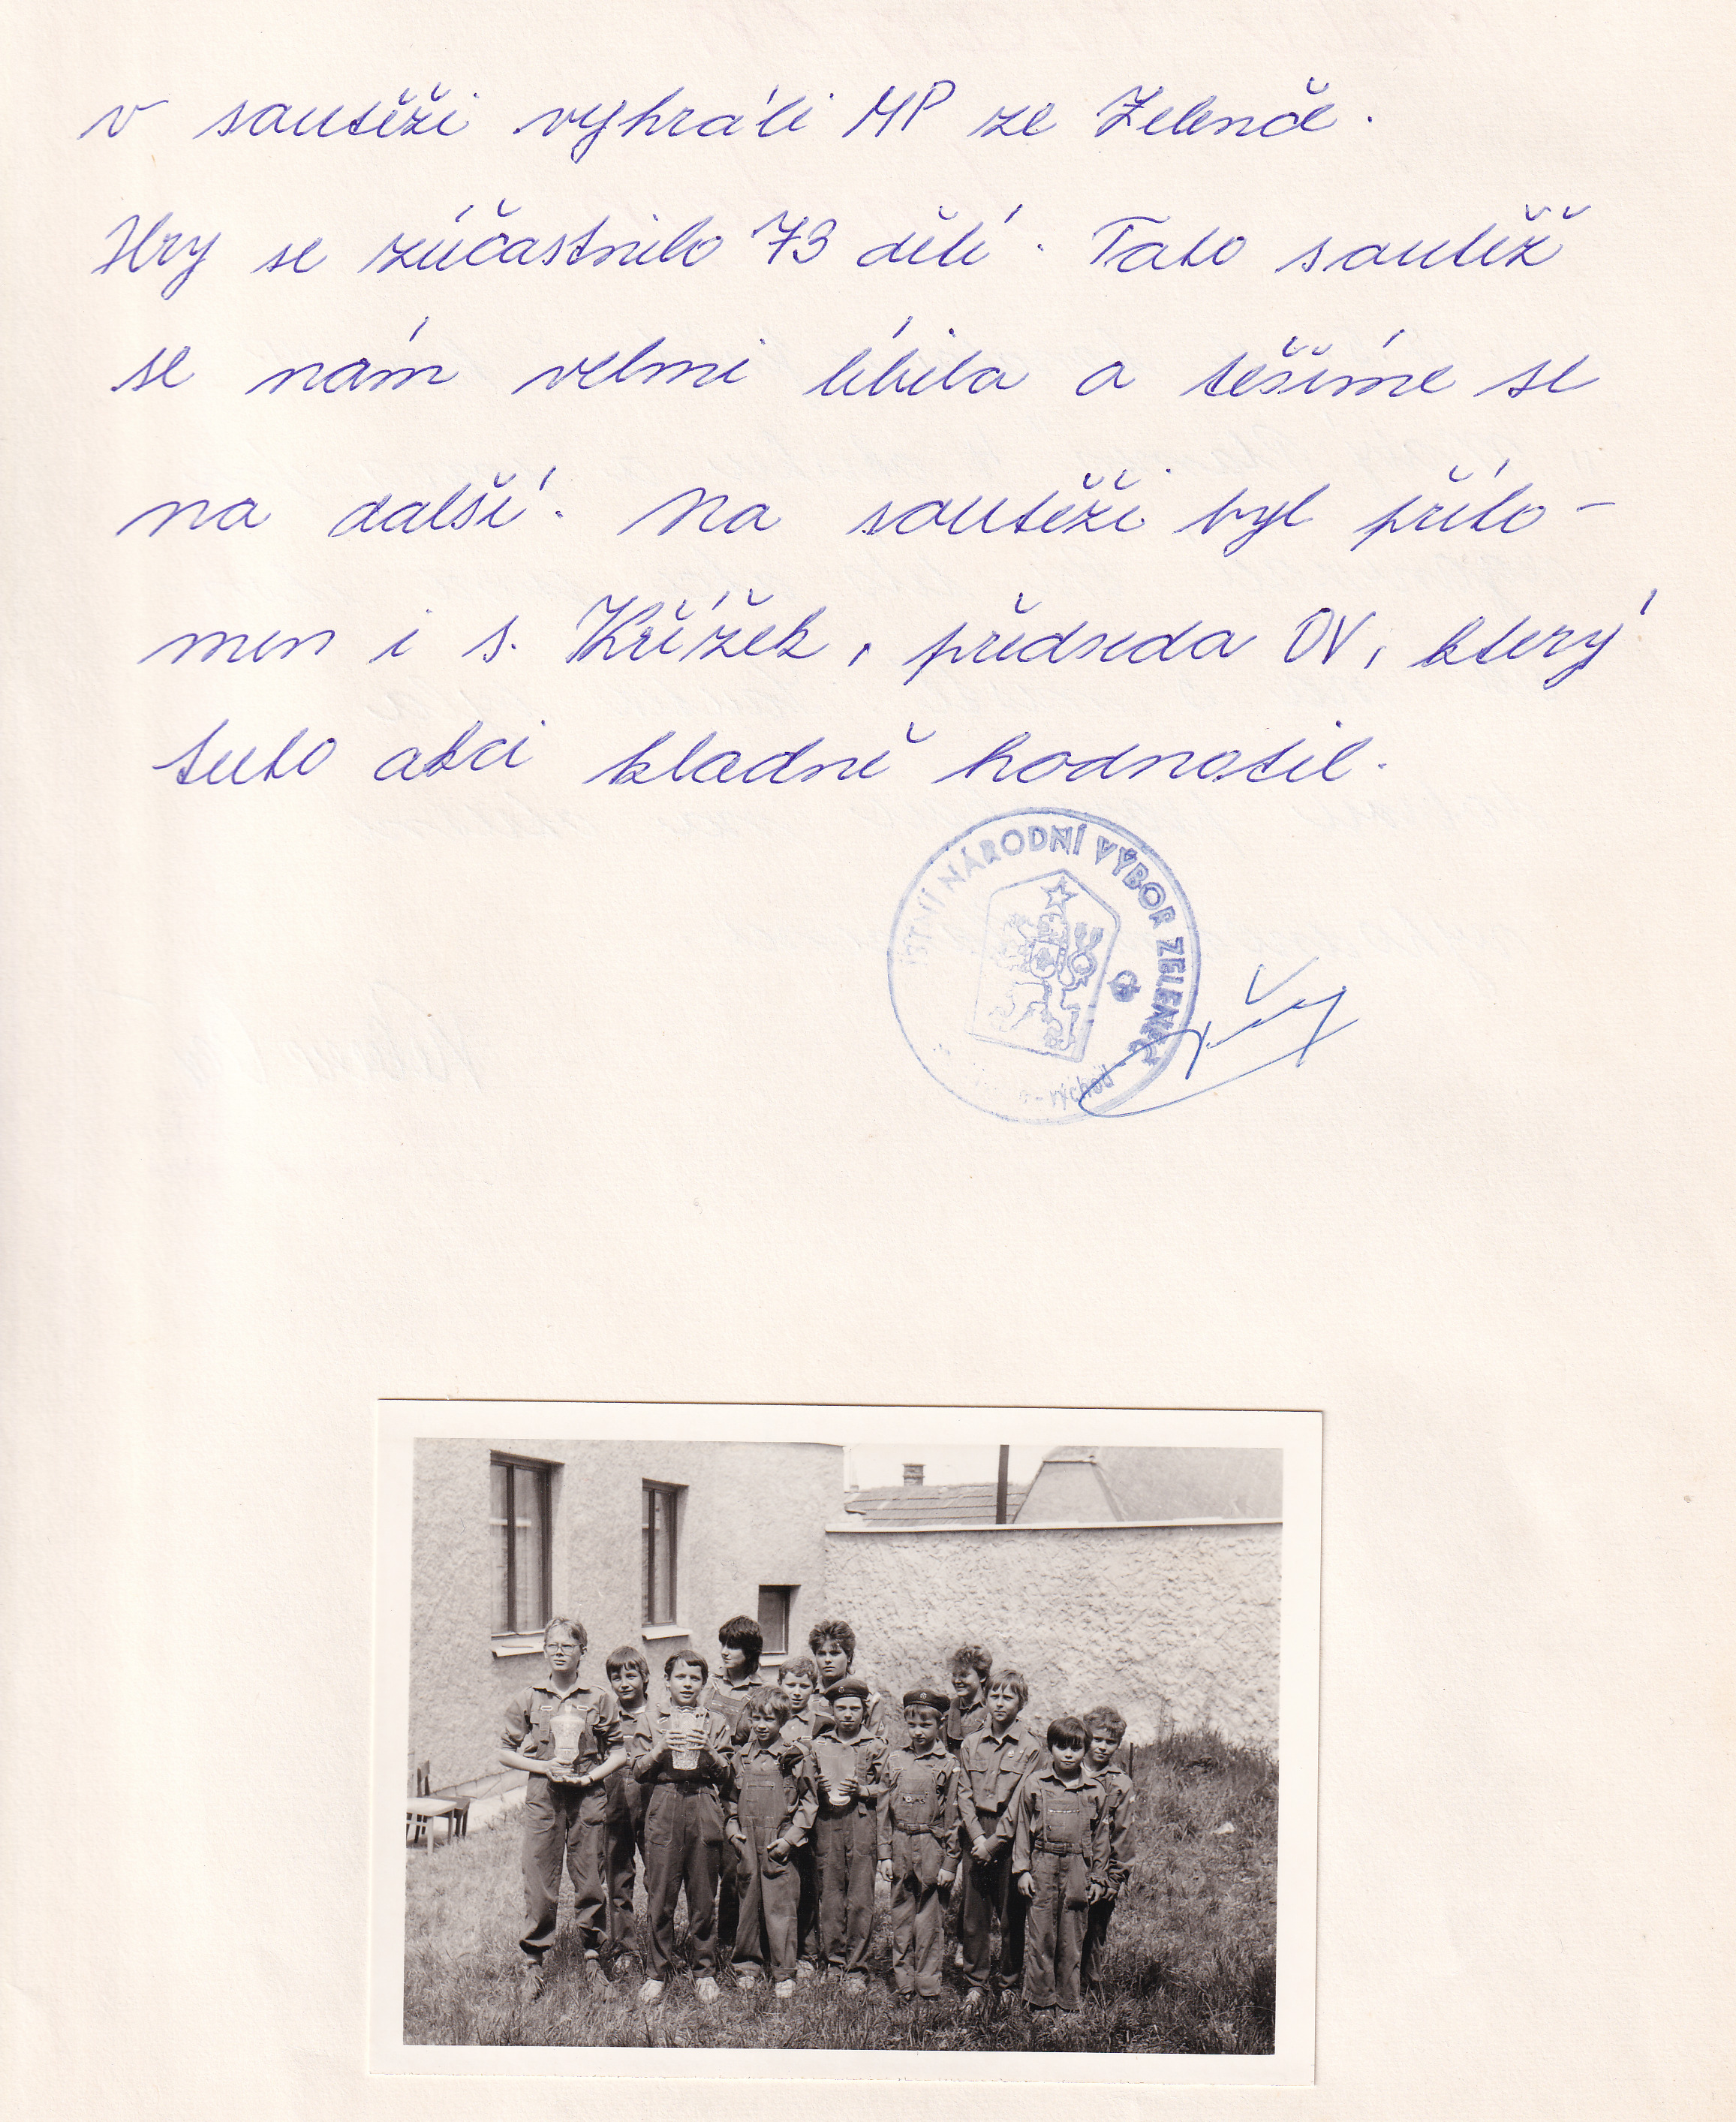 v soutěži vyhráli MP ze Zelenče.
Hry se zúčastnilo 73 dětí. Tato soutěž
se nám velmi líbila a těšíme se
na další. Na soutěži byl příto-
men i s. Křížek, předseda OV, který
tuto akci kladně hodnotil.
ÍSTNÍ NÁRODNÍ VÝBOR ZELENEČ
-východ